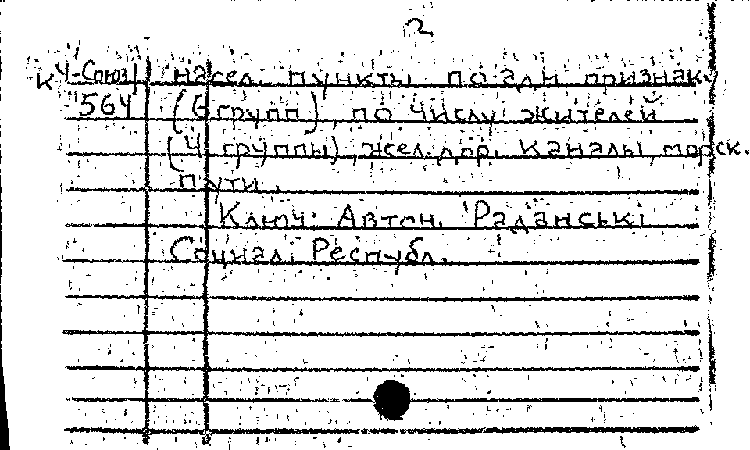 2
К 4-Союз насел. пункты по адм признаку
564 (6 групп), по числу жителей
(4 группы), жел. дор. каналы, морск.
пути.
Ключ: Автон. Радянські
Социал. Республ.